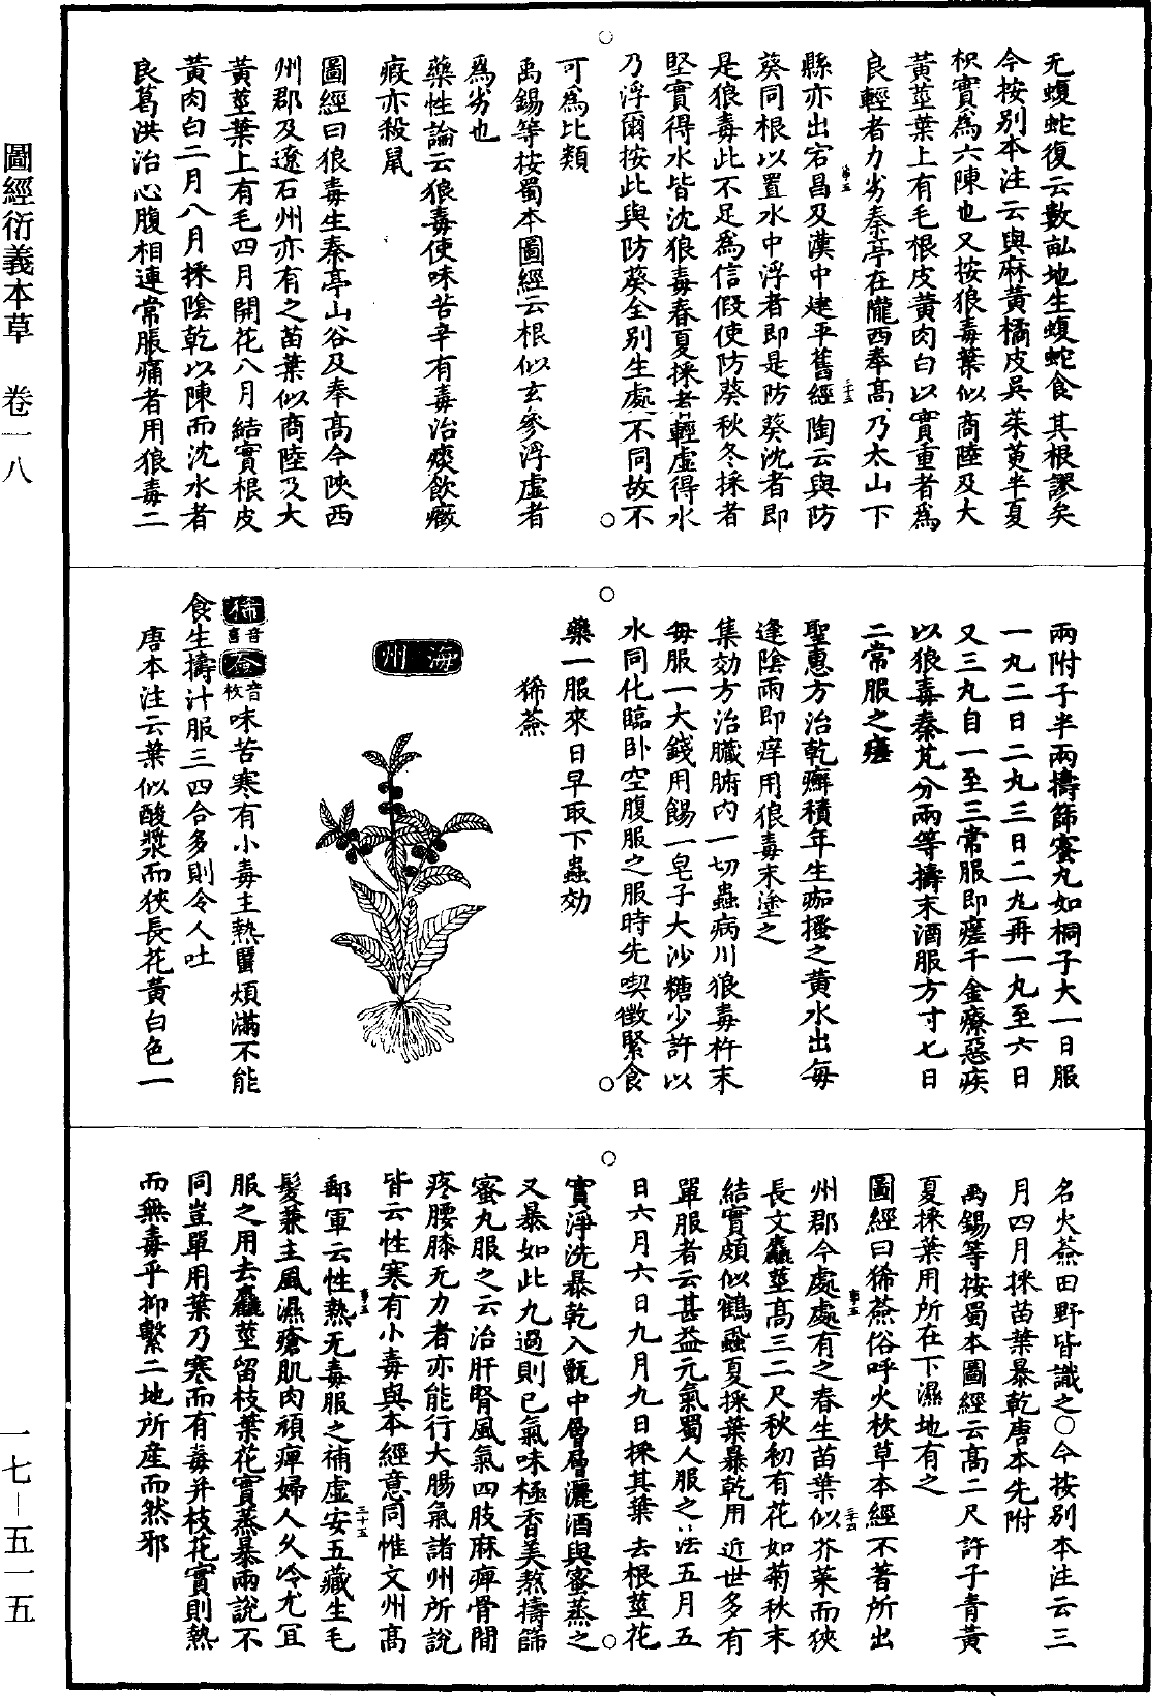 圖經衍義本草　卷一八
无蝮蛇復云數畝地生蝮蛇食其根謬矣
今按別本注云與麻黃橘皮吳茱萸半夏
枳實為六陳也又按狼毒葉似商陸及大
黃莖葉上有毛根皮黃肉白以實重者為
良輕者力劣秦亭在隴西奉高乃太山下
縣亦出宕昌及漢中建平舊經陶云與防
葵同根以置水中浮者即是防葵沈者即
是狼毒此不足為信假使防葵秋冬採者
堅實得水皆沈狼毒春夏採者輕虛得水
乃浮爾按此與防葵全別生處不同故不
可為比類
禹錫等按蜀本圖經云根似玄參浮虛者
為劣也
藥性論云狼毒使味苦辛有毒治痰飲癥
瘕亦殺鼠
圖經曰狼毒生秦亭山谷及奉高今陝西
州郡及遼石州亦有之苗葉似商陸及大
黃莖葉上有毛四月開花八月結實根皮
黃肉白二月八月採陰乾以陳而沈水者
良葛洪治心腹相連常脹痛者用狼毒二
兩附子半兩擣篩蜜丸如桐子大一日服
一丸二日二丸三日二丸再一丸至六日
又三丸自一至三常服即瘥千金療惡疾
以狼毒秦艽分兩等擣末酒服方寸七日
二常服之瘥
聖惠方治乾癬積年生痂搔之黃水出每
逢陰雨即痒用狼毒末塗之
集効方治臟腑內一切蟲病川狼毒杵末
每服一大錢用餳一皂子大沙糖少許以
水同化臨臥空腹服之服時先喫徵緊食
藥一服來日早取下蟲効
豨薟
海州
豨音喜薟音枚味苦寒有小毒主熱䘌煩滿不能
食生擣汁服三四合多則令人吐
唐本注云葉似酸漿而狹長花黃白色一
名火薟田野皆識之○今按別本注云三
月四月採苗葉暴乾唐本先附
禹錫等按蜀本圖經云高二尺許子青黃
夏採葉用所在下濕地有之
圖經曰豨薟俗呼火杴草本經不著所出
州郡今處處有之春生苗葉似芥菜而狹
長文麤莖高三二尺秋初有花如菊秋末
結實頗似鶴蝨夏採葉暴乾用近世多有
單服者云甚益元氣蜀人服之法五月五
日六月六日九月九日採其葉去根莖花
實淨洗暴乾入甑中層層灑酒與蜜蒸之
又暴如此九過則已氣味極香美熬擣篩
蜜丸服之云治肝腎風氣四肢麻痺骨間
疼腰膝无力者亦能行大腸氣諸州所說
皆云性寒有小毒與本經意同惟文州高
郵軍云性熱无毒服之補虛安五藏生毛
髮兼主風濕瘡肌肉頑痺婦人久冷尤宜
服之用去麤莖留枝葉花實蒸暴兩說不
同豈單用葉乃寒而有毒并枝花實則熱
而無毒乎抑繫二地所產而然邪
一七－五一五